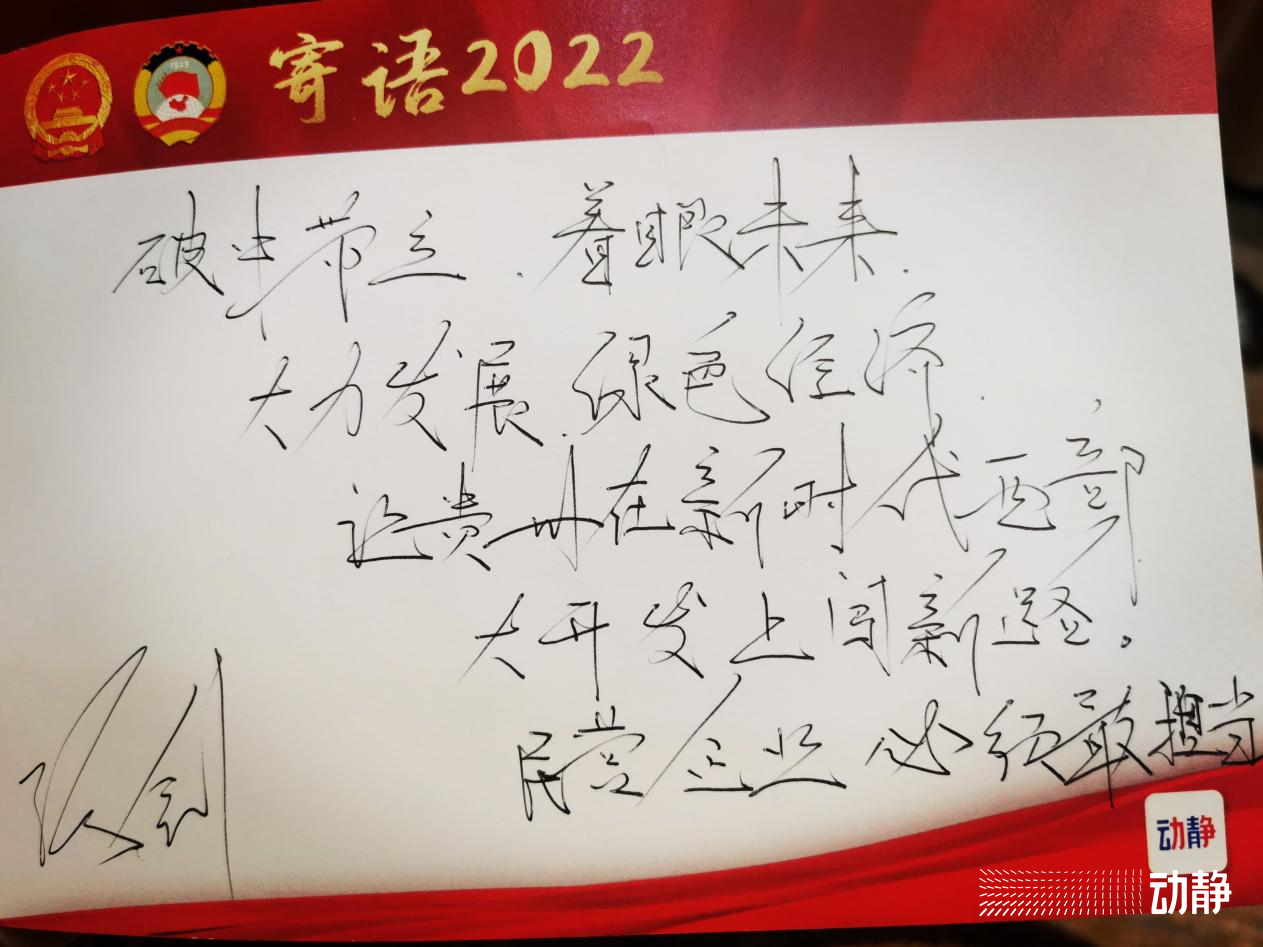 1949
寄语2022
破 立，着眼未来.
大力发展绿色经济.
让贵州在新时代西部
大开发上闯新 。
民营企业必须 担当
动静
动静